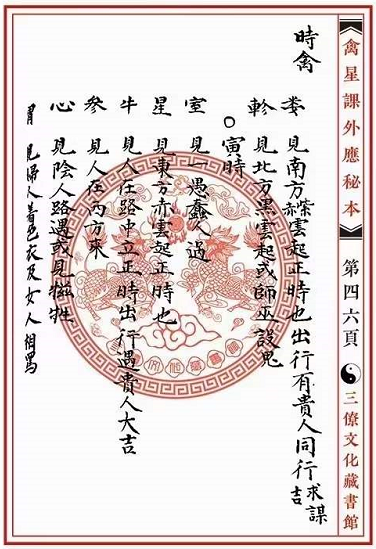 禽星課外應秘本
第四六頁
三僚文化藏書館
時禽
婁 見南方紫赤雲起正時也出行有貴人同行求謀吉
軫 見北方黑雲起或師巫設鬼
○寅時
室 見一愚蠢人過
星 見東方赤雲起正時也
牛 見人在路中立正時出行遇貴人大吉
參 見人在西方來
心 見陰人路遇或見犠牲
胃 見婦人着色衣及女人相罵